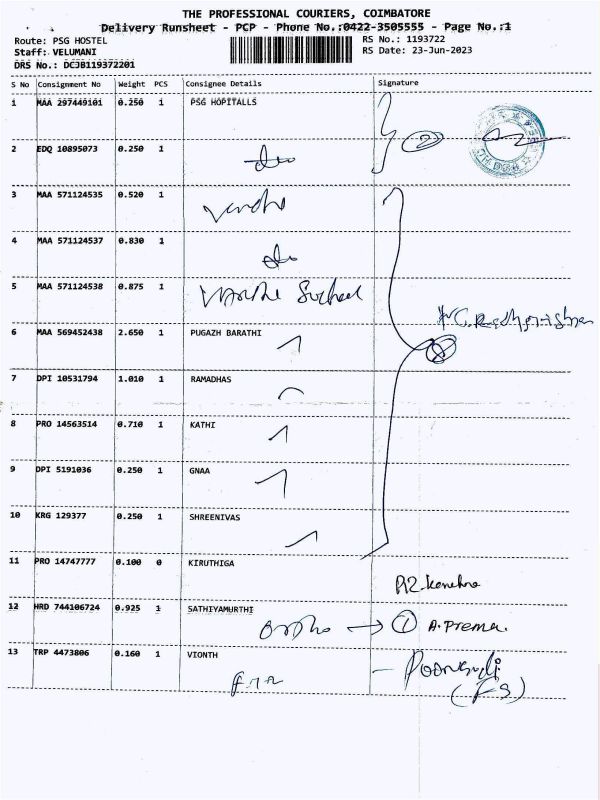 THE PROFESSIONAL COURIERS, COIMBATORE
Delivery Runsheet - PCP - Phone No.:0422-3505555 - Page No.:1
Route: PSG HOSTEL RS No.: 1193722
Staff: VELUMANI RS Date: 23-Jun-2023
DRS No.: DCJB119372201
S No Consignment No Weight PCS Consignee Details Signature
1 MAA 297449101 0.250 1 PSG HOPITALLS
2 EDQ 10895073 0.250 1 do 2
3 MAA 571124535 0.520 1
4 MAA 571124537 0.830 1 do
5 MAA 571124538 0.875 1
6 MAA 569452438 2.650 1 PUGAZH BARATHI 8
7 DPI 10531794 1.010 1 RAMADHAS
8 PRO 14563514 0.710 1 KATHI
9 DPI 5191036 0.250 1 GNAA
10 KRG 129377 0.250 1 SHREENIVAS
11 PRO 14747777 0.100 0 KIRUTHIGA
12 HRD 744106724 0.925 1 SATHIYAMURTHI
ortho → 1 A. Prema.
13 TRP 4473806 0.160 1 VIONTH